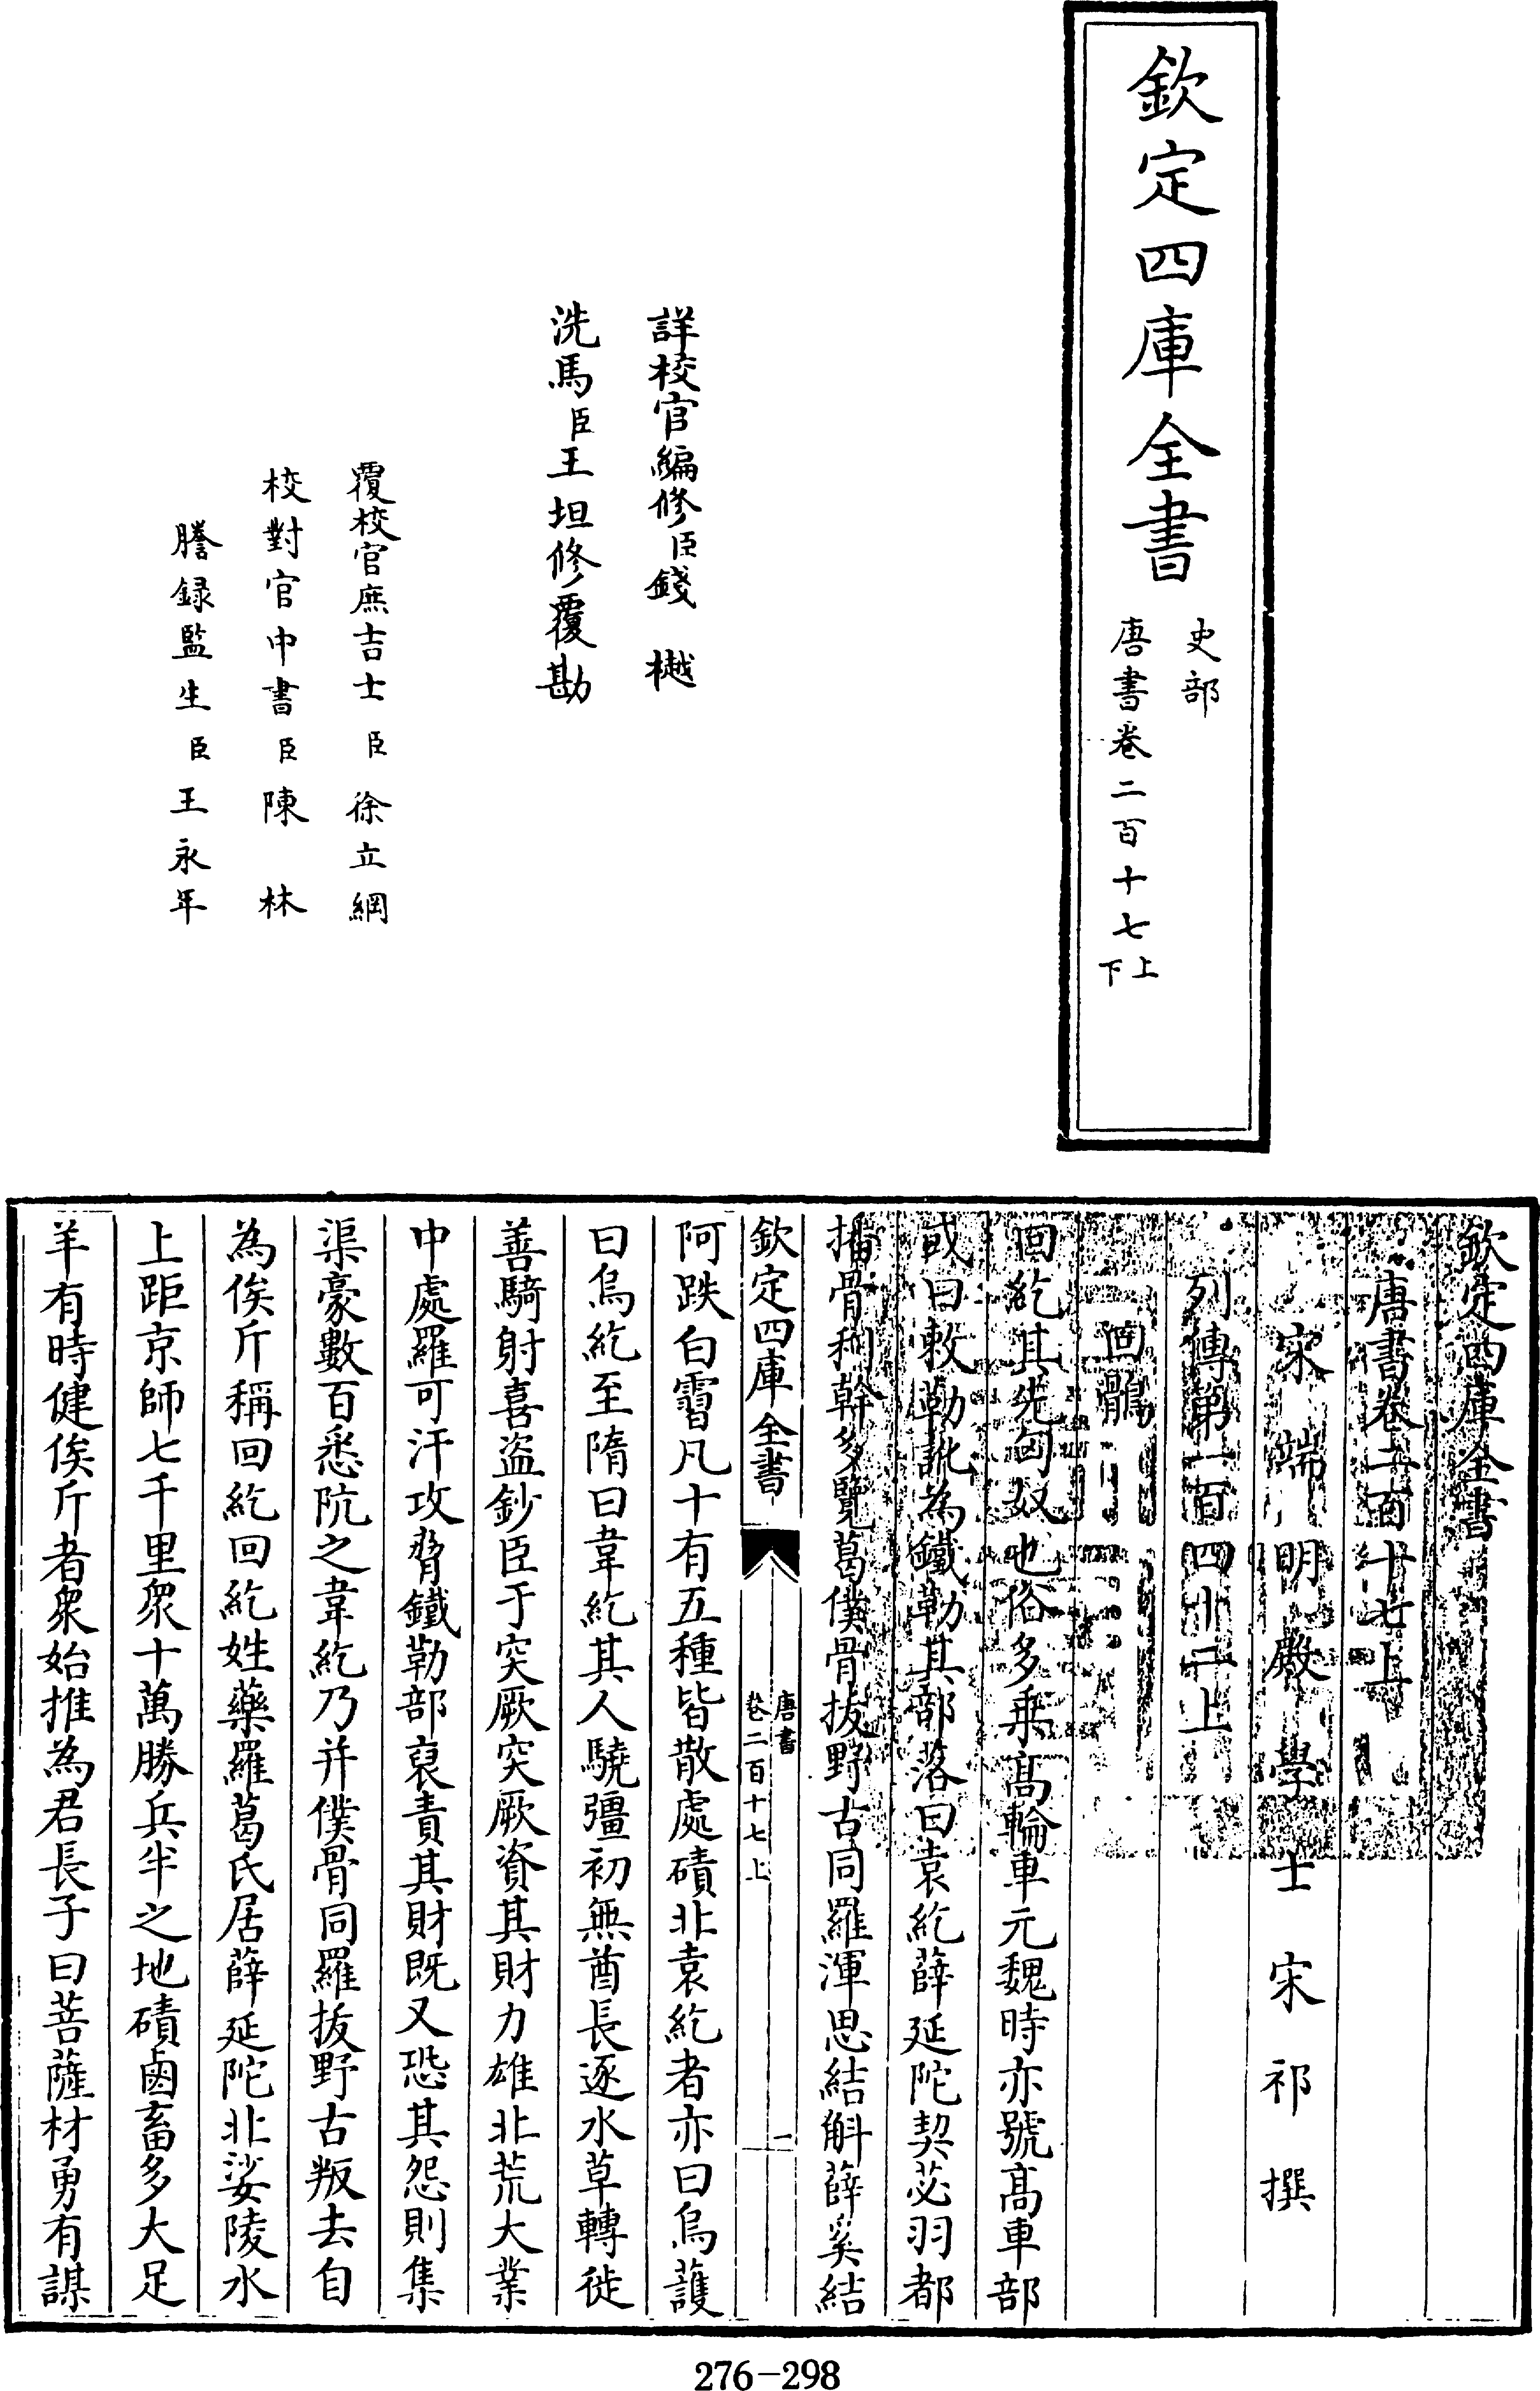 欽定四庫全書
史部
唐書卷二百十七上
下
詳校官編修臣錢樾
洗馬臣王坦修覆勘
覆校官庶吉士臣徐立綱
校對官中書臣陳林
謄録監生臣王永年
欽定四庫全書
唐書卷二百十七上
宋端明殿學士宋祁撰
列傳第一百四十二上
回鶻
回紇其先匈奴也俗多乗髙輪車元魏時亦號髙車部
或曰敕勒訛為鐵勒其部落曰袁紇薛延陀契苾羽都
播骨利幹多覽葛僕骨拔野古同羅渾思結斛薛奚結
阿跌白霫凡十有五種皆散處磧北袁紇者亦曰烏護
曰烏紇至隋曰韋紇其人驍彊初無酋長逐水草轉徙
善騎射喜盗鈔臣于突厥突厥資其財力雄北荒大業
中處羅可汗攻脅鐵勒部裒責其財既又恐其怨則集
渠豪數百悉阬之韋紇乃并僕骨同羅拔野古叛去自
為俟斤稱回紇回紇姓藥羅葛氏居薛延陀北娑陵水
上距京師七千里衆十萬勝兵半之地磧鹵畜多大足
羊有時健俟斤者衆始推為君長子曰菩薩材勇有謀
欽定四庫全書
唐書
卷二百十七上
一
276-298